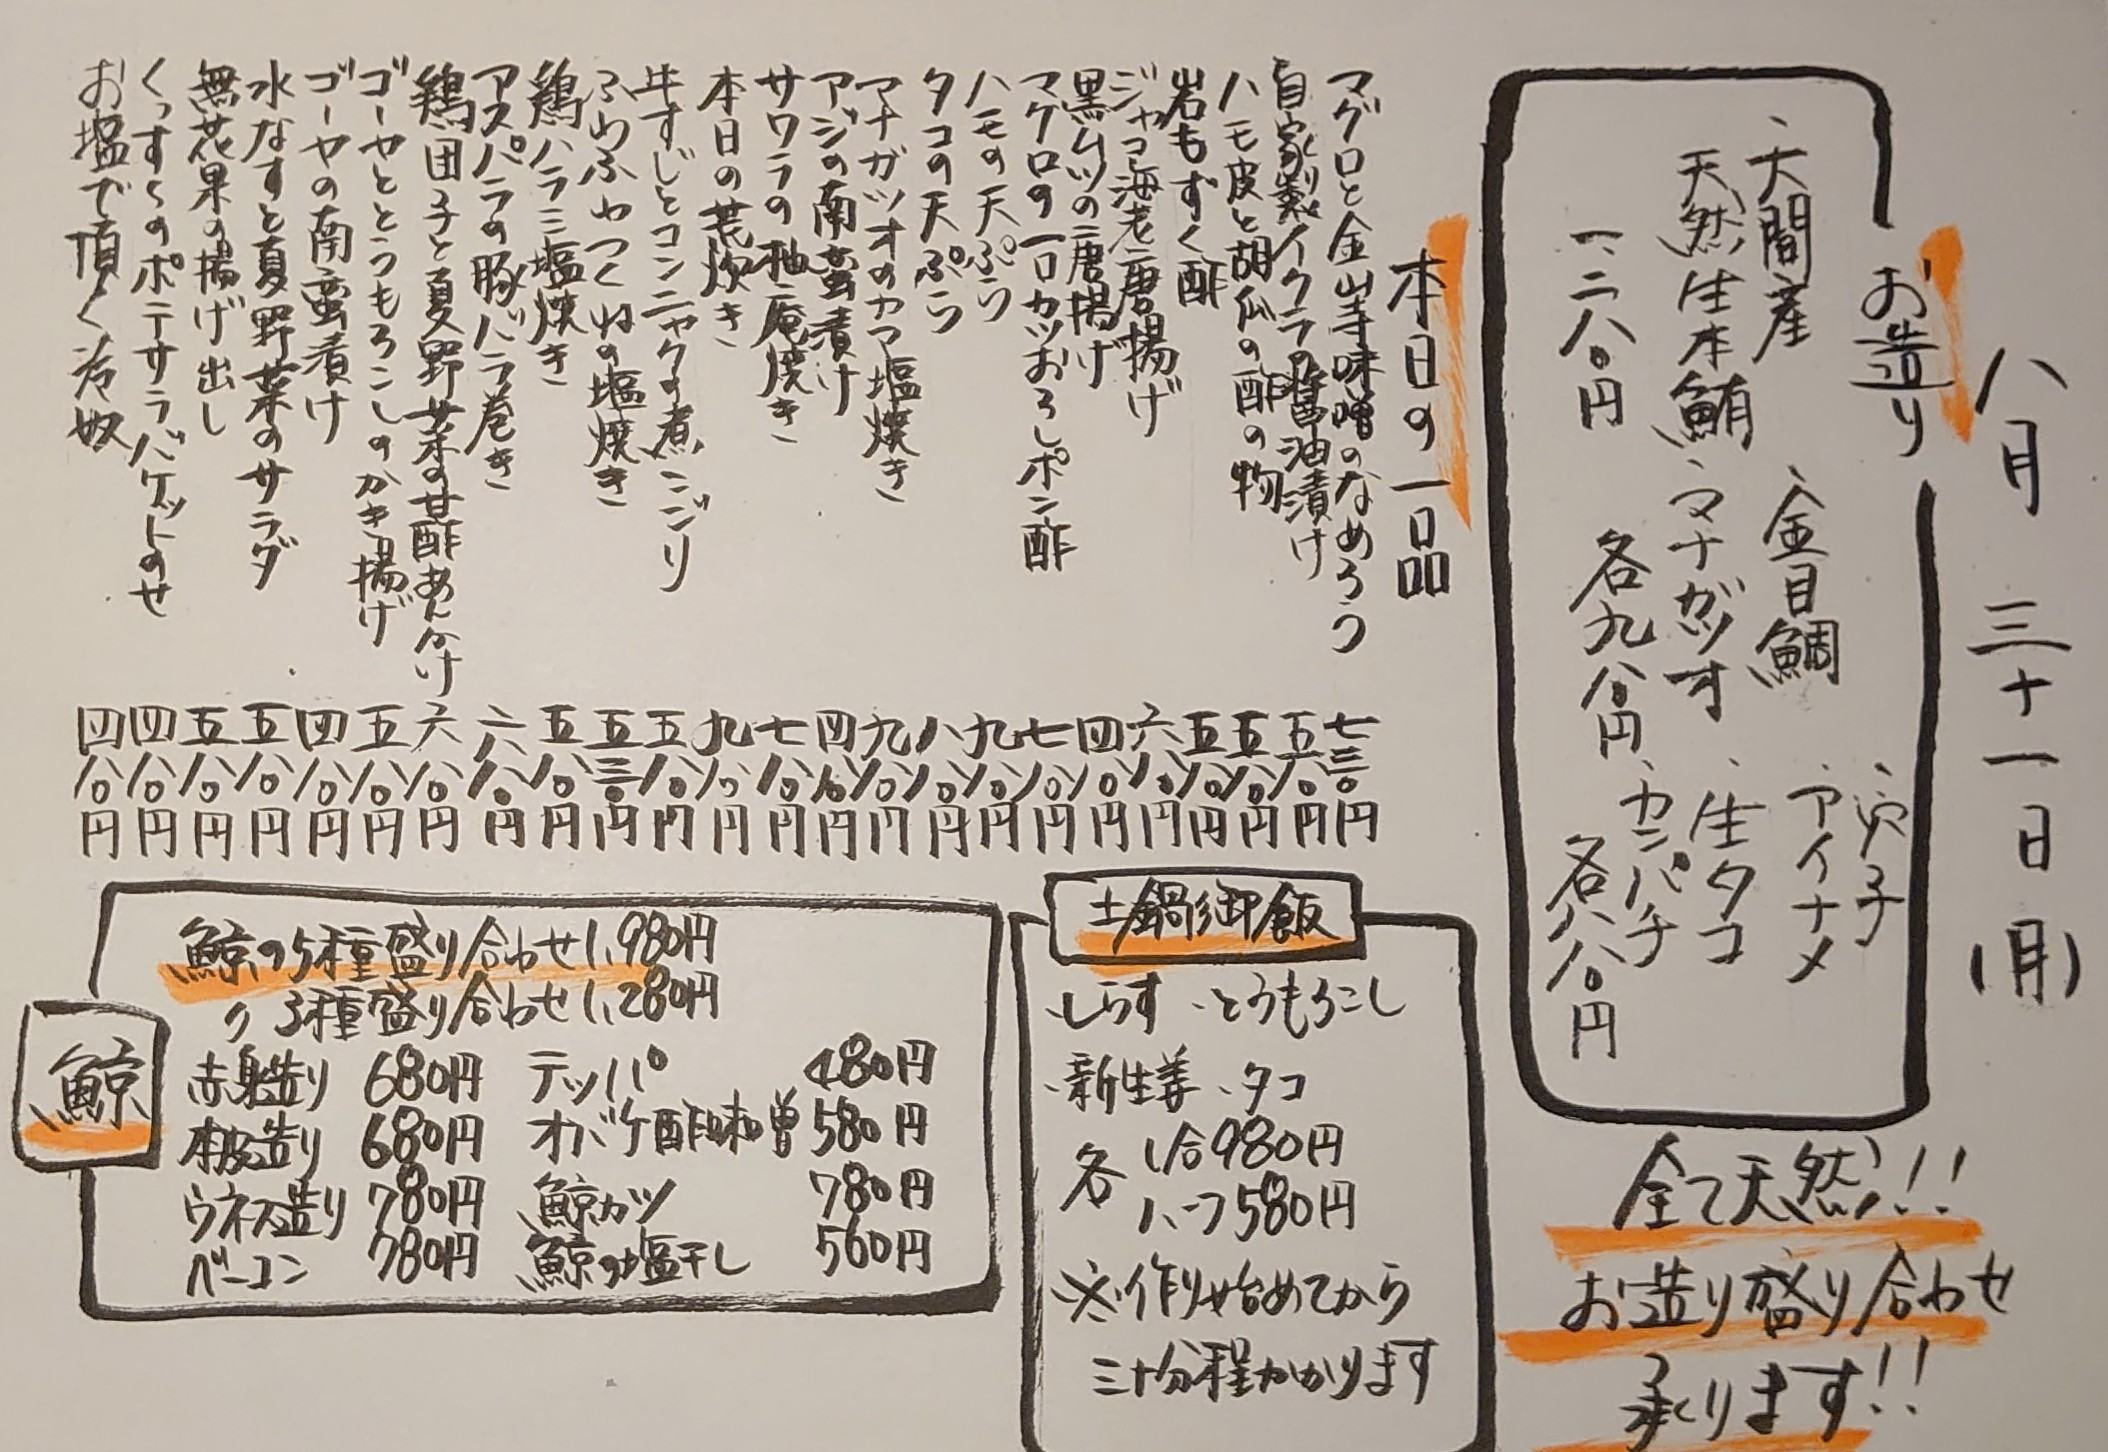 八月三十一日(月)
お造り
、穴子
、大間産 、金目鯛 、アイナメ
天然生本鮪 、マナガツオ 、生タコ
、カンパチ
一、二八〇円 各九八〇円 各八八〇円
全て天然!!
お造り盛り合わせ
承ります!!
本日の一品
マグロと金山寺味噌のなめろう 七三〇円
自家製イクラの醤油漬け 五八〇円
ハモ皮と胡瓜の酢の物 五八〇円
岩もずく酢 五八〇円
ジャコ海老唐揚げ 六八〇円
黒ムツの唐揚げ 四八〇円
マグロの一口カツおろしポン酢 七八〇円
ハモの天ぷら 九八〇円
タコの天ぷら 八八〇円
マナガツオのカマ塩焼き 九八〇円
アジの南蛮漬け 四八〇円
サワラの柚庵焼き 七八〇円
本日の荒炊き 九八〇円
牛すじとコンニャクの煮こごり 五八〇円
ふわふわつくねの塩焼き 五三〇円
鶏ハラミ塩焼き 五八〇円
アスパラの豚バラ巻き 六八〇円
鶏団子と夏野菜の甘酢あんかけ 六八〇円
ゴーヤととうもろこしのかき揚げ 五八〇円
ゴーヤの南蛮漬け 四八〇円
水なすと夏野菜のサラダ 五八〇円
無花果の揚げ出し 五八〇円
くっすくのポテサラバケットのせ 四八〇円
お塩で頂く冷奴 四八〇円
土鍋御飯
、しらす 、とうもろこし
、新生姜 、タコ
各 1合980円
ハーフ580円
※作り始めてから
三十分程かかります
鯨
鯨の5種盛り合わせ1,980円
〃 3種盛り合わせ1,280円
赤身造り 680円 テッパ 480円
本皮造り 680円 オバケ酢味噌 580円
ウネス造り 780円 鯨カツ 780円
ベーコン 780円 鯨の塩干し 560円